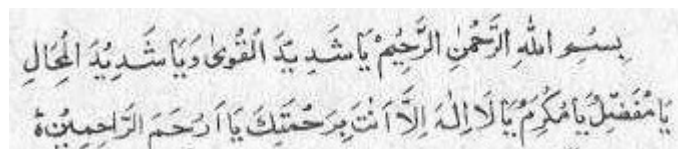 بِسْــمِ اللهِ الرَّحْمٰنِ الرَّحِيْمِ يَا شَـدِيْدَ الْقُوىٰ وَيَا شَـدِيْدَ الْمِحَالِ
يَا مُفَضِّلُ يَا مُكْرِمُ يَا لَا اِلٰهَ اِلَّا اَنْتَ بِرَحْمَتِكَ يَا اَرْحَمَ الرَّاحِمِيْنَ ةٗ